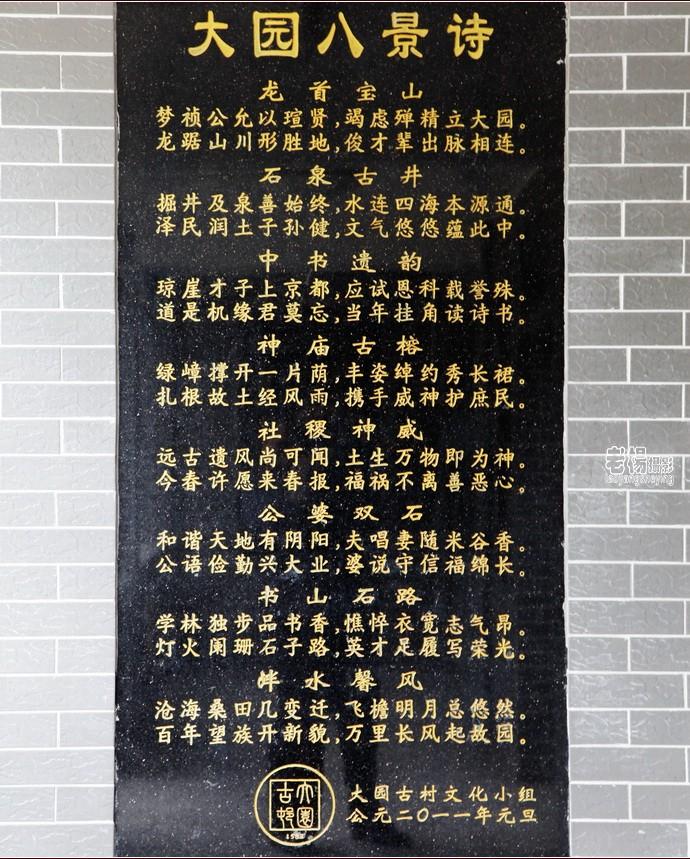 大园八景诗
龙首宝山
梦祯公允以瑄贤,竭虑殚精立大园。
龙踞山川形胜地,俊才辈出脉相连。
石泉古井
掘井及泉善始终,水连四海本源通。
泽民润土子孙健,文气悠悠蕴此中。
中书遗韵
琼崖才子上京都,应试恩科载誉殊。
道是机缘君莫忘,当年挂角读诗书。
神庙古榕
绿嶂撑开一片荫,丰姿绰约秀长裙。
扎根故土经风雨,携手威神护庶民。
社稷神威
远古遗风尚可闻,土生万物即为神。
今春许愿来春报,福祸不离善恶心。
公婆双石
和谐天地有阴阳,夫唱妻随米谷香。
公语俭勤兴大业,婆说守信福绵长。
书山石路
学林独步品书香,憔悴衣宽志气昂。
灯火阑珊石子路,英才足履写荣光。
泮水馨风
沧海桑田几变迁,飞檐明月总悠然。
百年望族开新貌,万里长风起故园。
大园古邨
1584
大园古村文化小组
公元二〇一一年元旦
老杨摄影
laoyangsheying